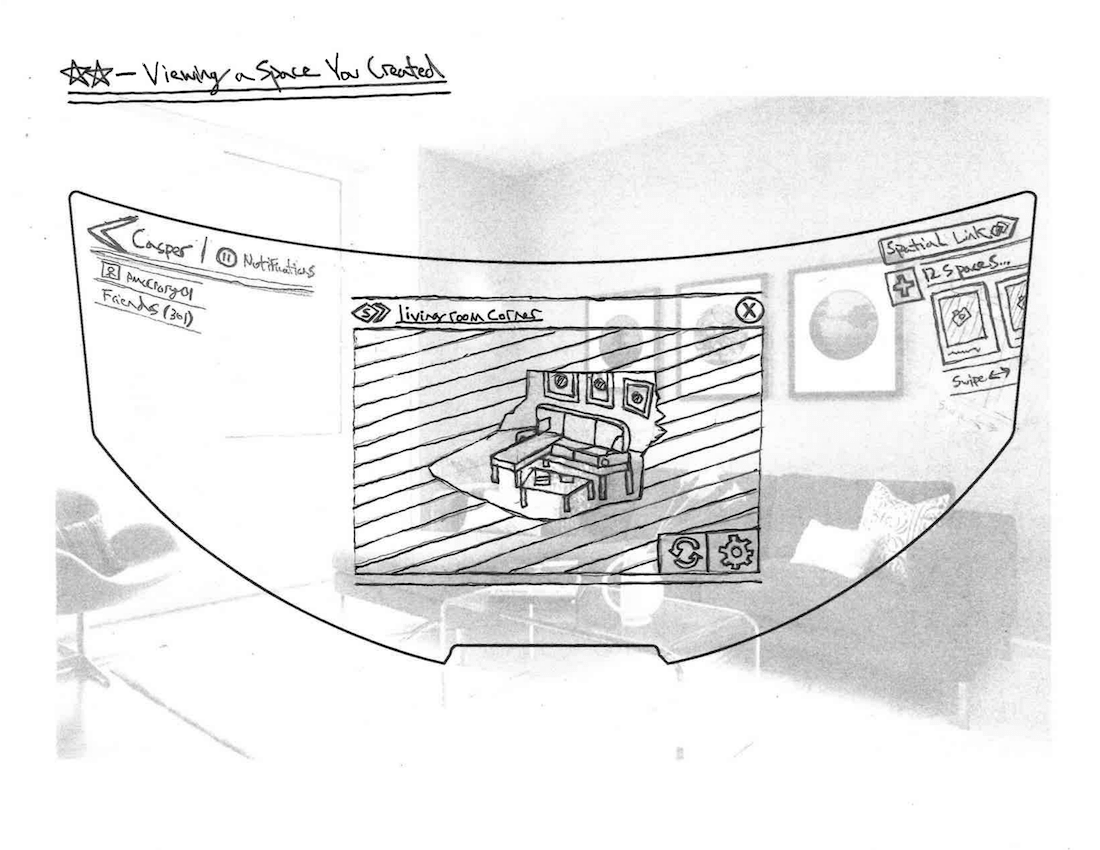 ☆☆ – Viewing a Space You Created
Casper | Notifications
Amccrary01
Friends (301)
S livingroom corner X
Spatial Link
12 Spaces...
Swipe